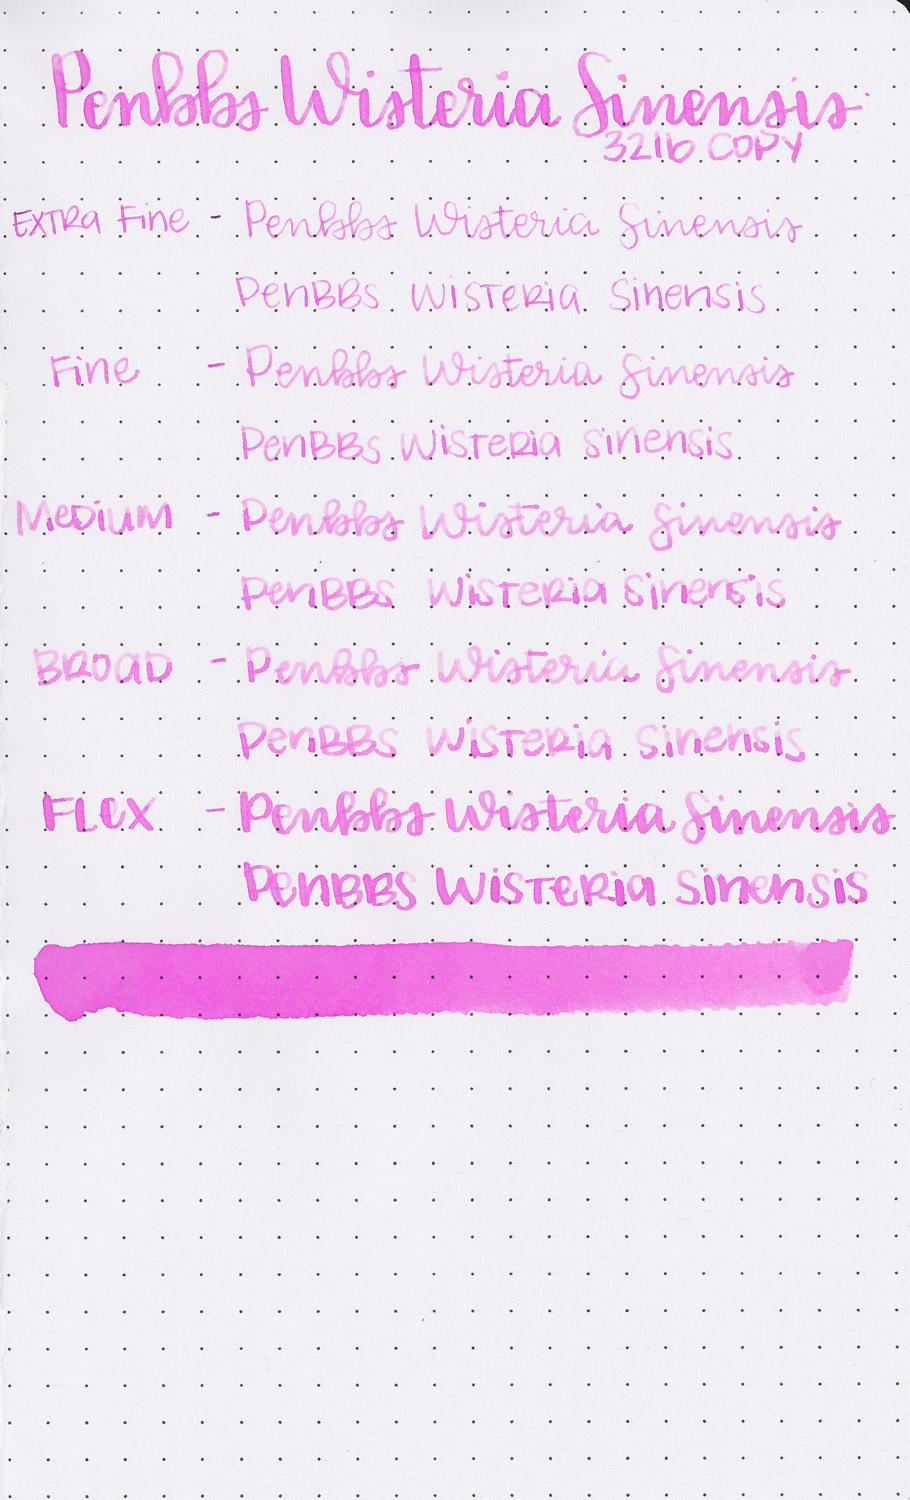 Penbbs Wisteria Sinensis
32lb COPY
EXTRA Fine - Penbbs Wisteria Sinensis
PenBBS WISTERIA Sinensis
Fine - Penbbs Wisteria Sinensis
PenBBS WISTERIA Sinensis
MeDiUM - Penbbs Wisteria Sinensis
PenBBS WISTERIA Sinensis
BROAD - Penbbs Wisteria Sinensis
PenBBS WISTERIA Sinensis
FLeX - Penbbs Wisteria Sinensis
PenBBS WISTERIA Sinensis